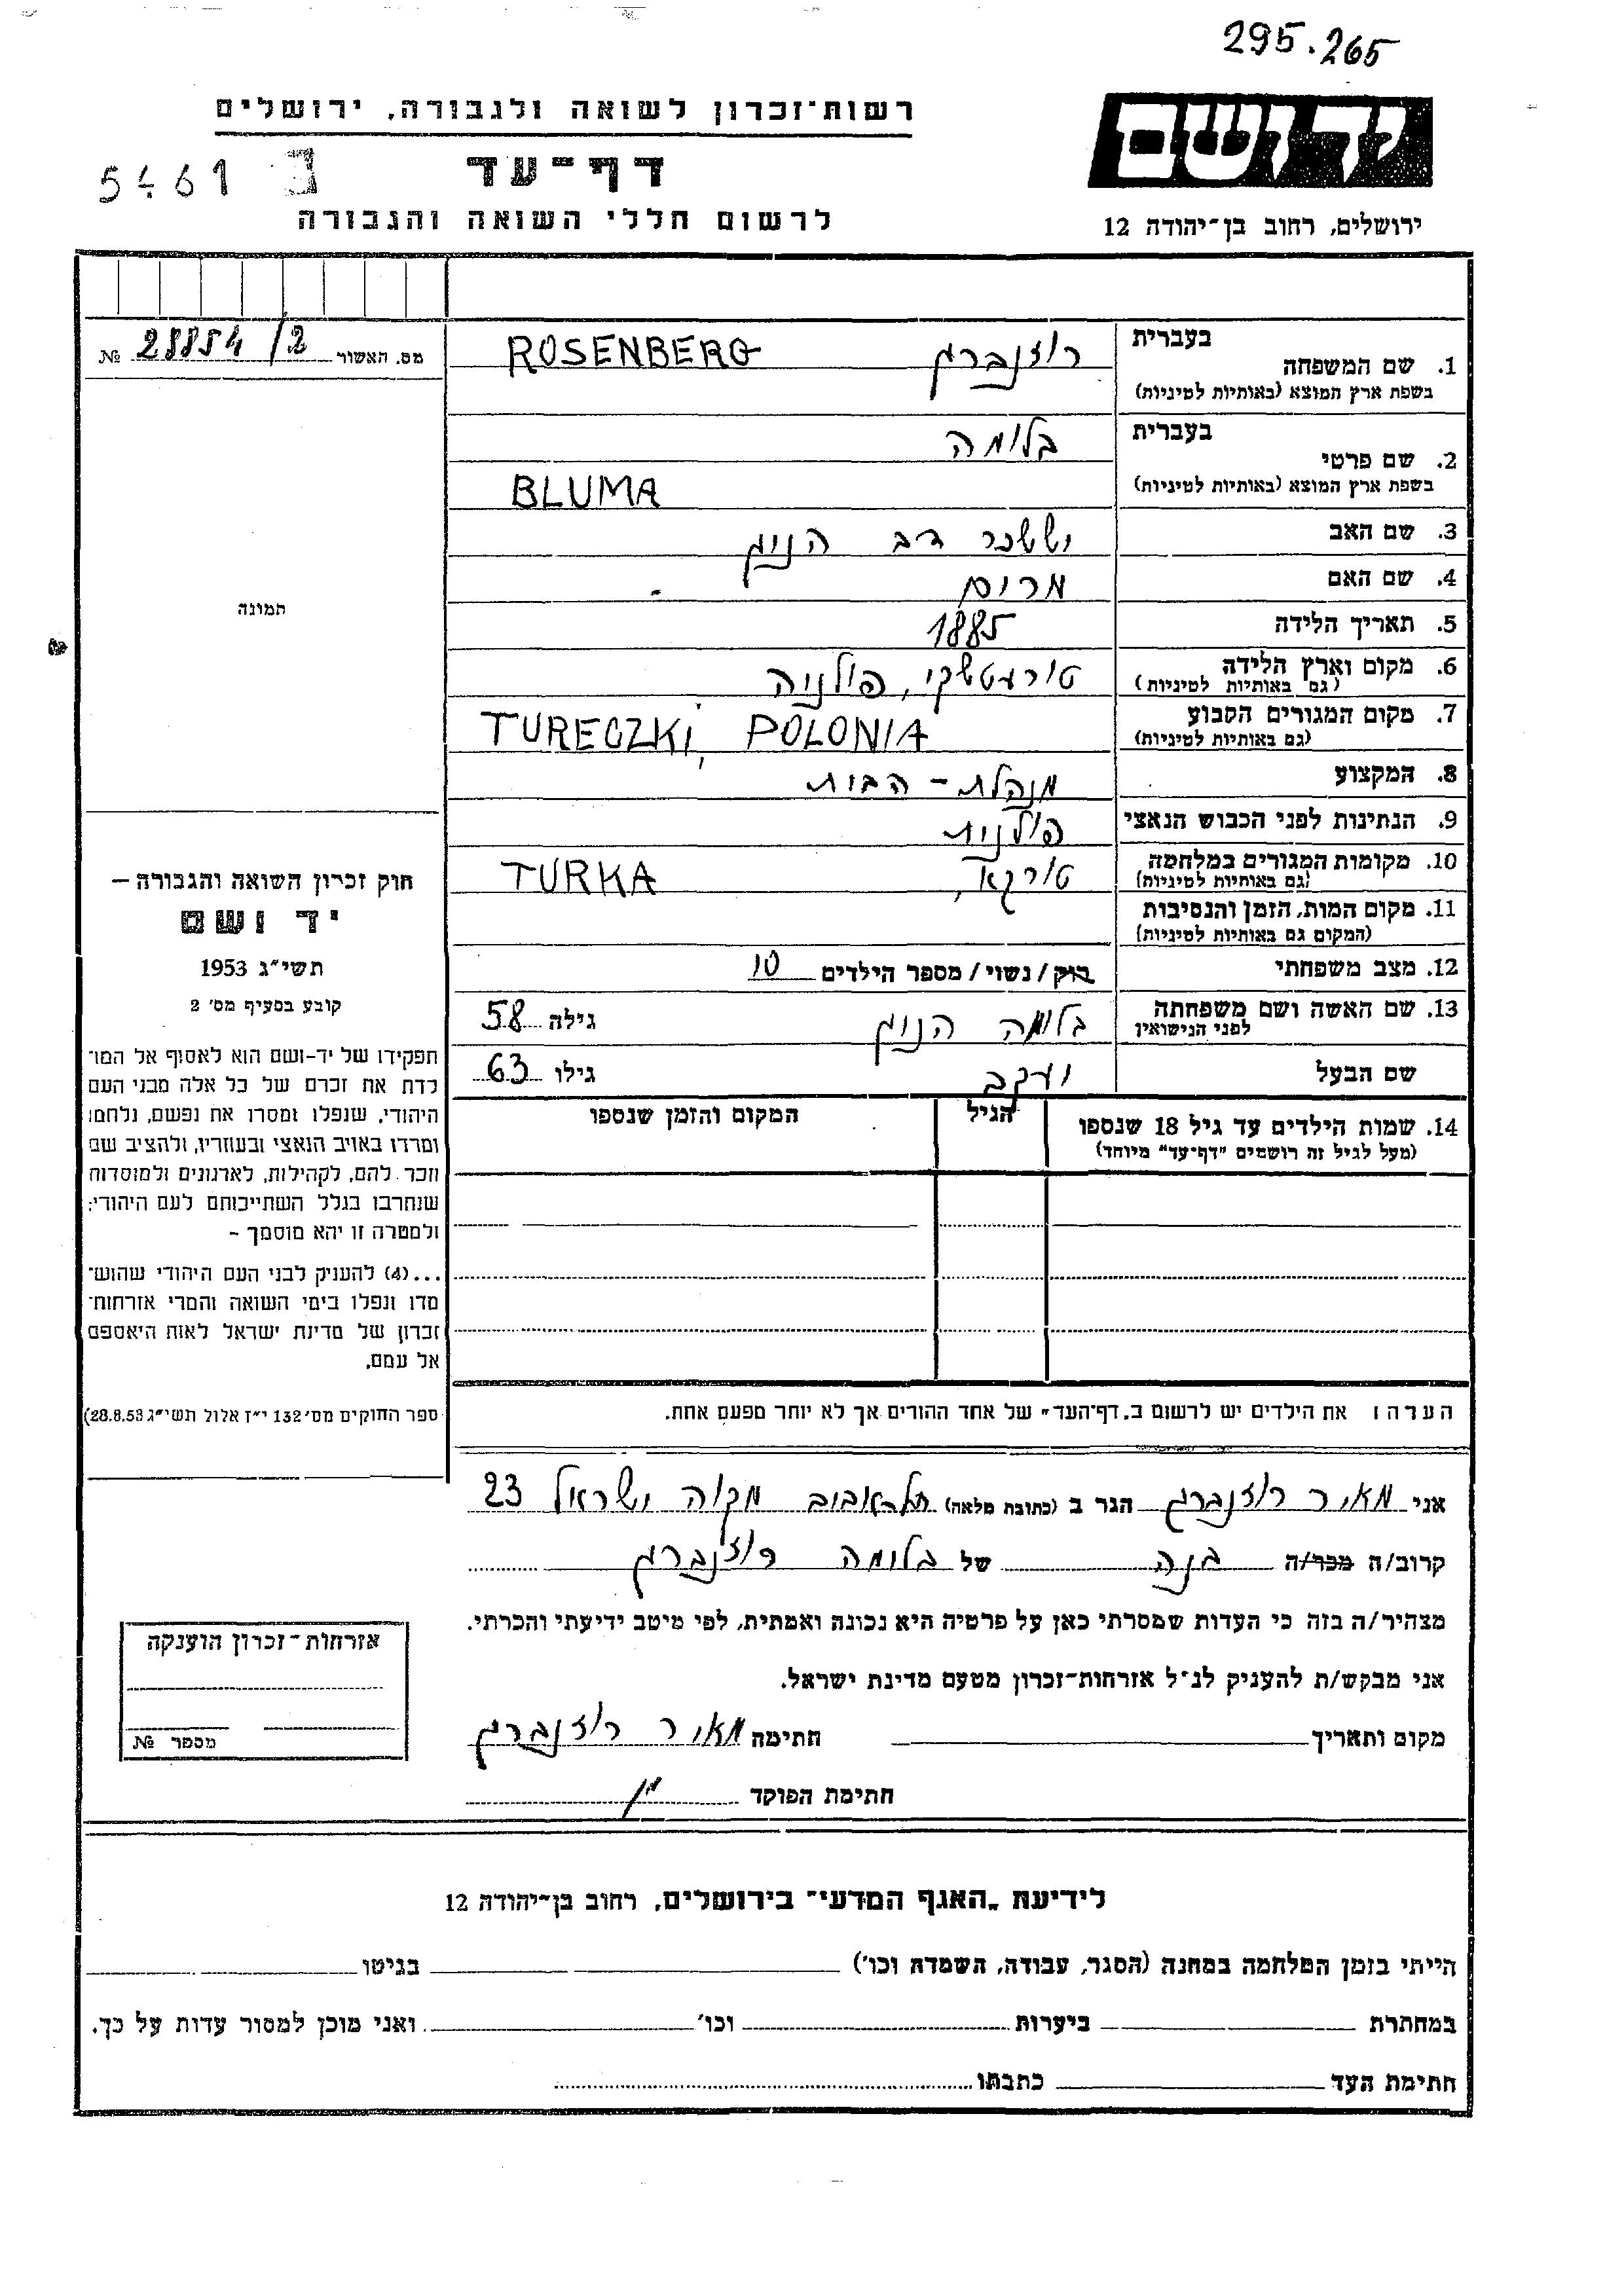 295.265
רשות-זכרון לשואה ולגבורה, ירושלים
יד ושם
דף-עד
5461
לרשום חללי השואה והגבורה
ירושלים, רחוב בן-יהודה 12
מס. האשור 28854/2 №
בעברית רוזנברג ROSENBERG
1. שם המשפחה
בשפת ארץ המוצא (באותיות לטיניות)
בעברית בלומה
2. שם פרטי
בשפת ארץ המוצא (באותיות לטיניות) BLUMA
3. שם האב יששכר דב הניג
4. שם האם מרים
5. תאריך הלידה 1885
6. מקום וארץ הלידה טורעטשקי, פולניה
(גם באותיות לטיניות)
7. מקום המגורים הקבוע TURECZKI, POLONIA
(גם באותיות לטיניות)
8. המקצוע מנהלת-הבית
9. הנתינות לפני הכבוש הנאצי פולנית
10. מקומות המגורים במלחמה טורקא, TURKA
(גם באותיות לטיניות)
11. מקום המות, הזמן והנסיבות
(המקום גם באותיות לטיניות)
12. מצב משפחתי רוק/נשוי/מספר הילדים 10
13. שם האשה ושם משפחתה בלומה הניג גילה 58
לפני הנישואין
שם הבעל יעקב גילו 63
14. שמות הילדים עד גיל 18 שנספו הגיל המקום והזמן שנספו
(מעל לגיל זה רושמים "דף-עד" מיוחד)
תמונה
חוק זכרון השואה והגבורה –
יד ושם
תשי"ג 1953
קובע בסעיף מס' 2
תפקידו של יד-ושם הוא לאסוף אל המו־
לדת את זכרם של כל אלה מבני העם
היהודי, שנפלו ומסרו את נפשם, נלחמו
ומרדו באויב הנאצי ובעוזריו, ולהציב שם
וזכר להם, לקהילות, לארגונים ולמוסדות
שנחרבו בגלל השתייכותם לעם היהודי;
ולמטרה זו יהא מוסמך –
...(4) להעניק לבני העם היהודי שהוש־
מדו ונפלו בימי השואה והמרי אזרחות־
זכרון של מדינת ישראל לאות היאספם
אל עמם.
ספר החוקים מס' 132 י"ז אלול תשי"ג 28.8.53)
הערה: את הילדים יש לרשום ב„דף-העד" של אחד ההורים אך לא יותר מפעם אחת.
אני מאיר רוזנברג הגר ב (כתובת מלאה) תל-אביב מקוה ישראל 23
קרוב/ה מכר/ה בנה של בלומה רוזנברג
מצהיר/ה בזה כי העדות שמסרתי כאן על פרטיה היא נכונה ואמתית, לפי מיטב ידיעתי והכרתי.
אני מבקש/ת להעניק לנ"ל אזרחות-זכרון מטעם מדינת ישראל.
מקום ותאריך חתימה מאיר רוזנברג
חתימת הפוקד
אזרחות-זכרון הוענקה
מספר №
לידיעת „האגף המדעי" בירושלים, רחוב בן-יהודה 12
הייתי בזמן המלחמה במחנה (הסגר, עבודה, השמדה וכו') בגיטו
במחתרת ביערות וכו' ואני מוכן למסור עדות על כך.
חתימת העד כתבתו